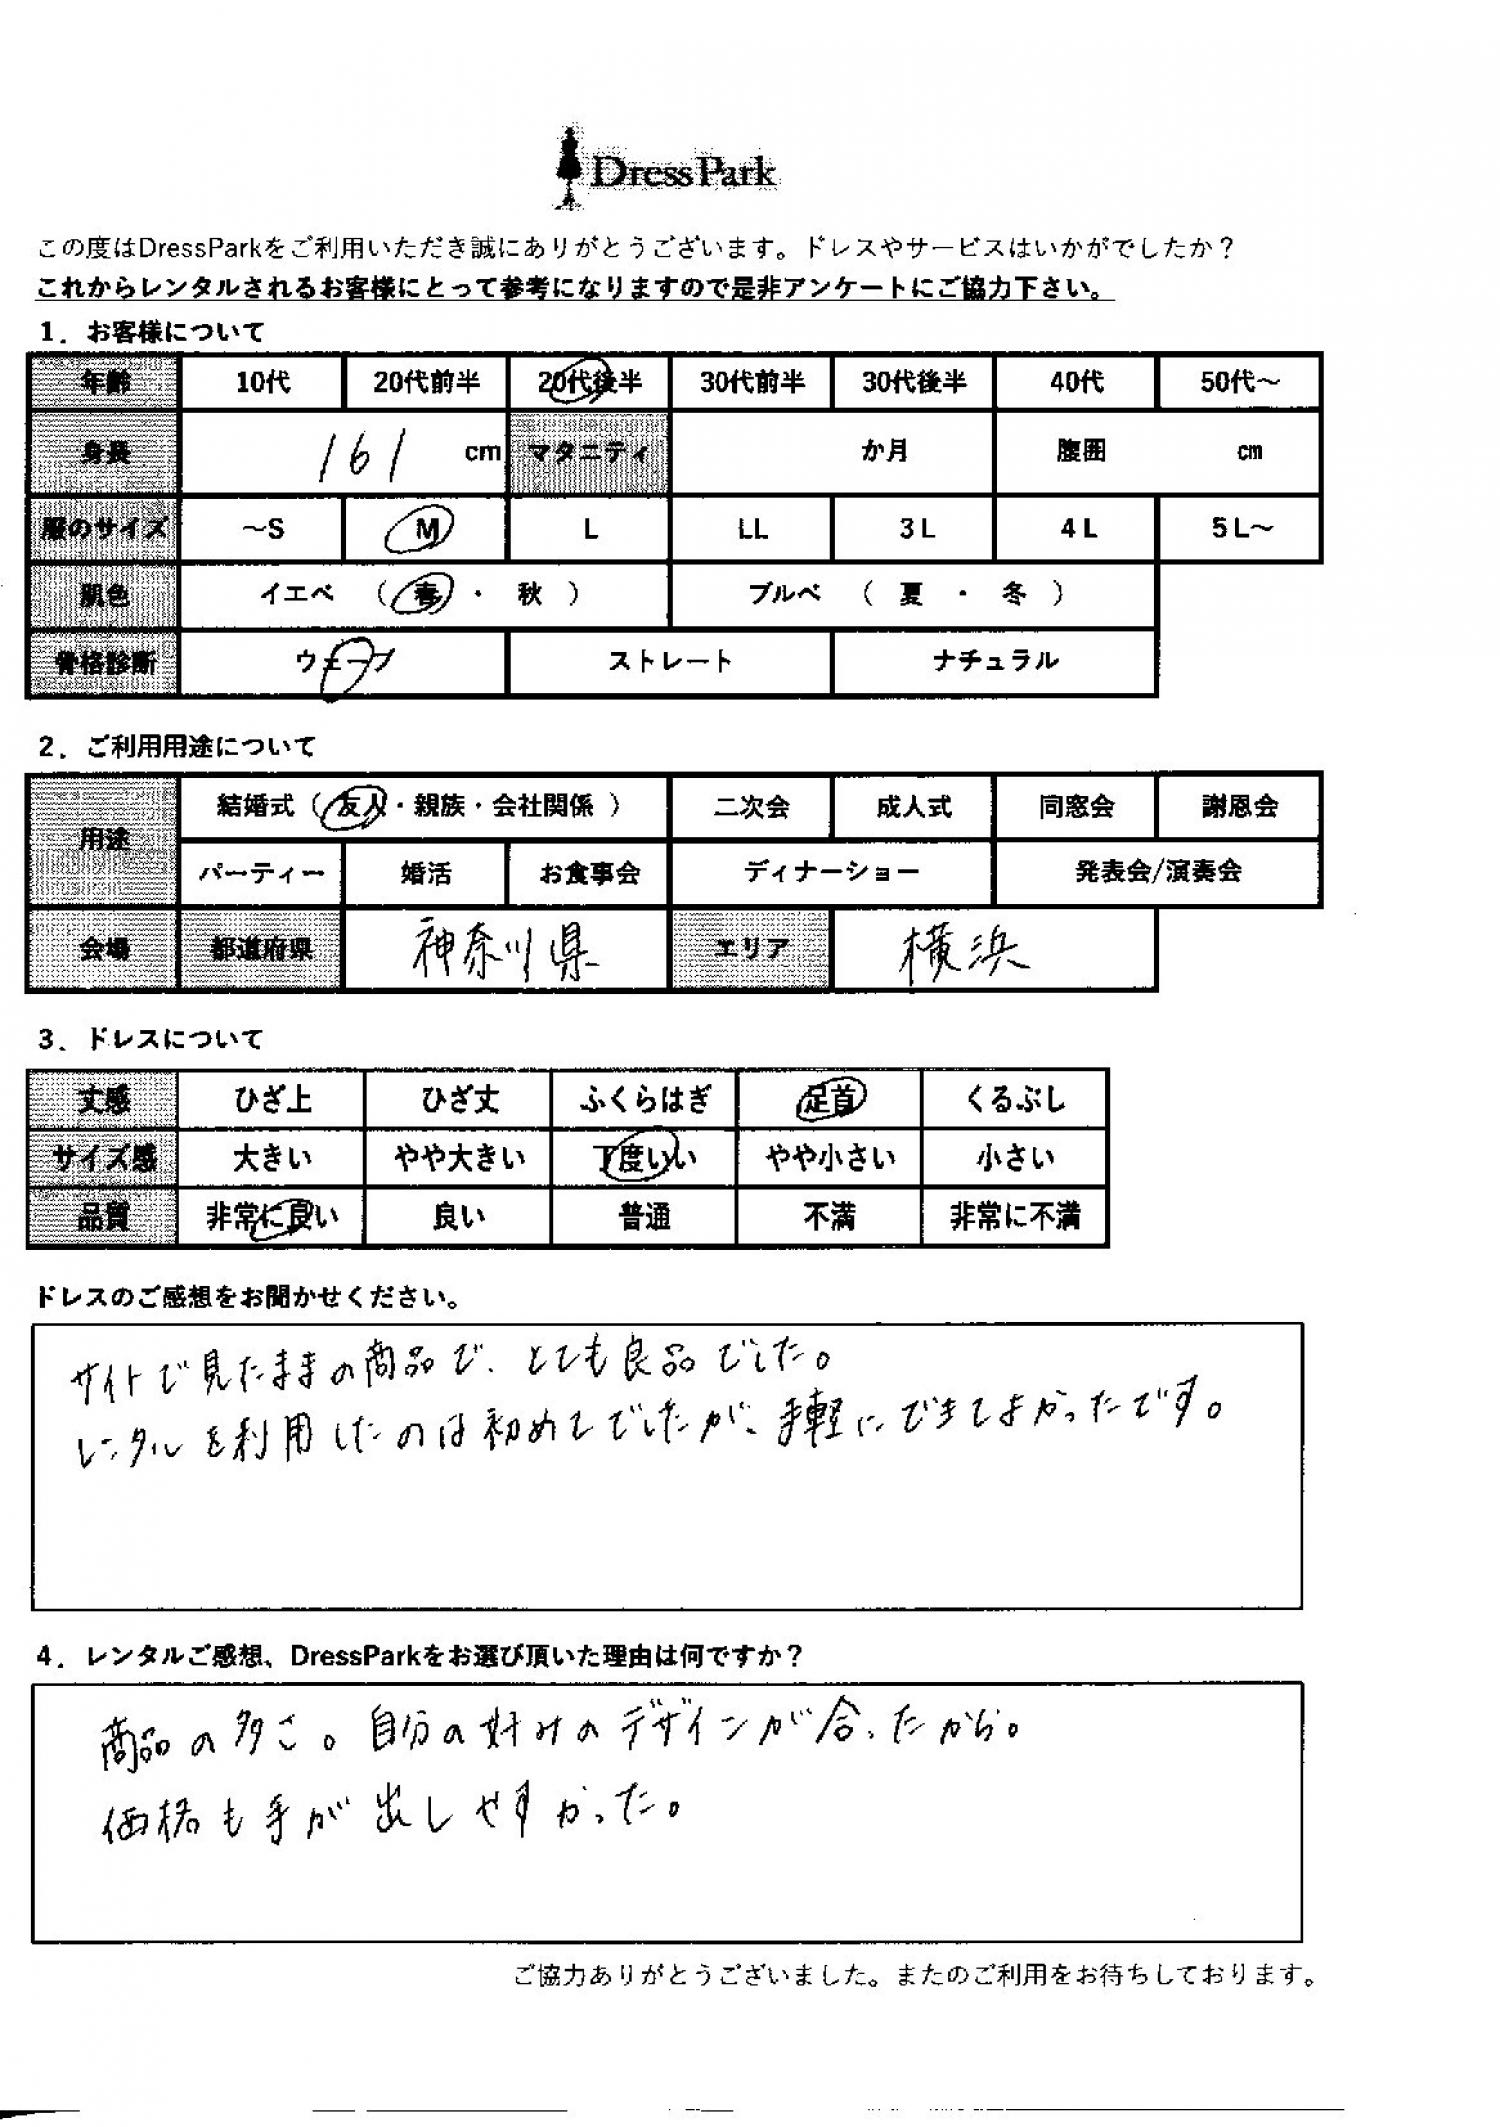 DressPark
この度はDressParkをご利用いただき誠にありがとうございます。ドレスやサービスはいかがでしたか？
これからレンタルされるお客様にとって参考になりますので是非アンケートにご協力下さい。
1．お客様について
年齢 10代 20代前半 20代後半 30代前半 30代後半 40代 50代～
身長 161 cm マタニティ か月 腹囲 cm
服のサイズ ～S M L LL 3L 4L 5L～
肌色 イエベ （ 春 ・ 秋 ） ブルベ （ 夏 ・ 冬 ）
骨格診断 ウェーブ ストレート ナチュラル
2．ご利用用途について
用途 結婚式（ 友人・親族・会社関係 ） 二次会 成人式 同窓会 謝恩会
パーティー 婚活 お食事会 ディナーショー 発表会/演奏会
会場 都道府県 神奈川県 エリア 横浜
3．ドレスについて
丈感 ひざ上 ひざ丈 ふくらはぎ 足首 くるぶし
サイズ感 大きい やや大きい 丁度いい やや小さい 小さい
品質 非常に良い 良い 普通 不満 非常に不満
ドレスのご感想をお聞かせください。
サイトで見たままの商品で、とても良品でした。
レンタルを利用したのは初めてでしたが、手軽にできてよかったです。
4．レンタルご感想、DressParkをお選び頂いた理由は何ですか？
商品の多さ。自分の好みのデザインが合ったから。
価格も手が出しやすかった。
ご協力ありがとうございました。またのご利用をお待ちしております。